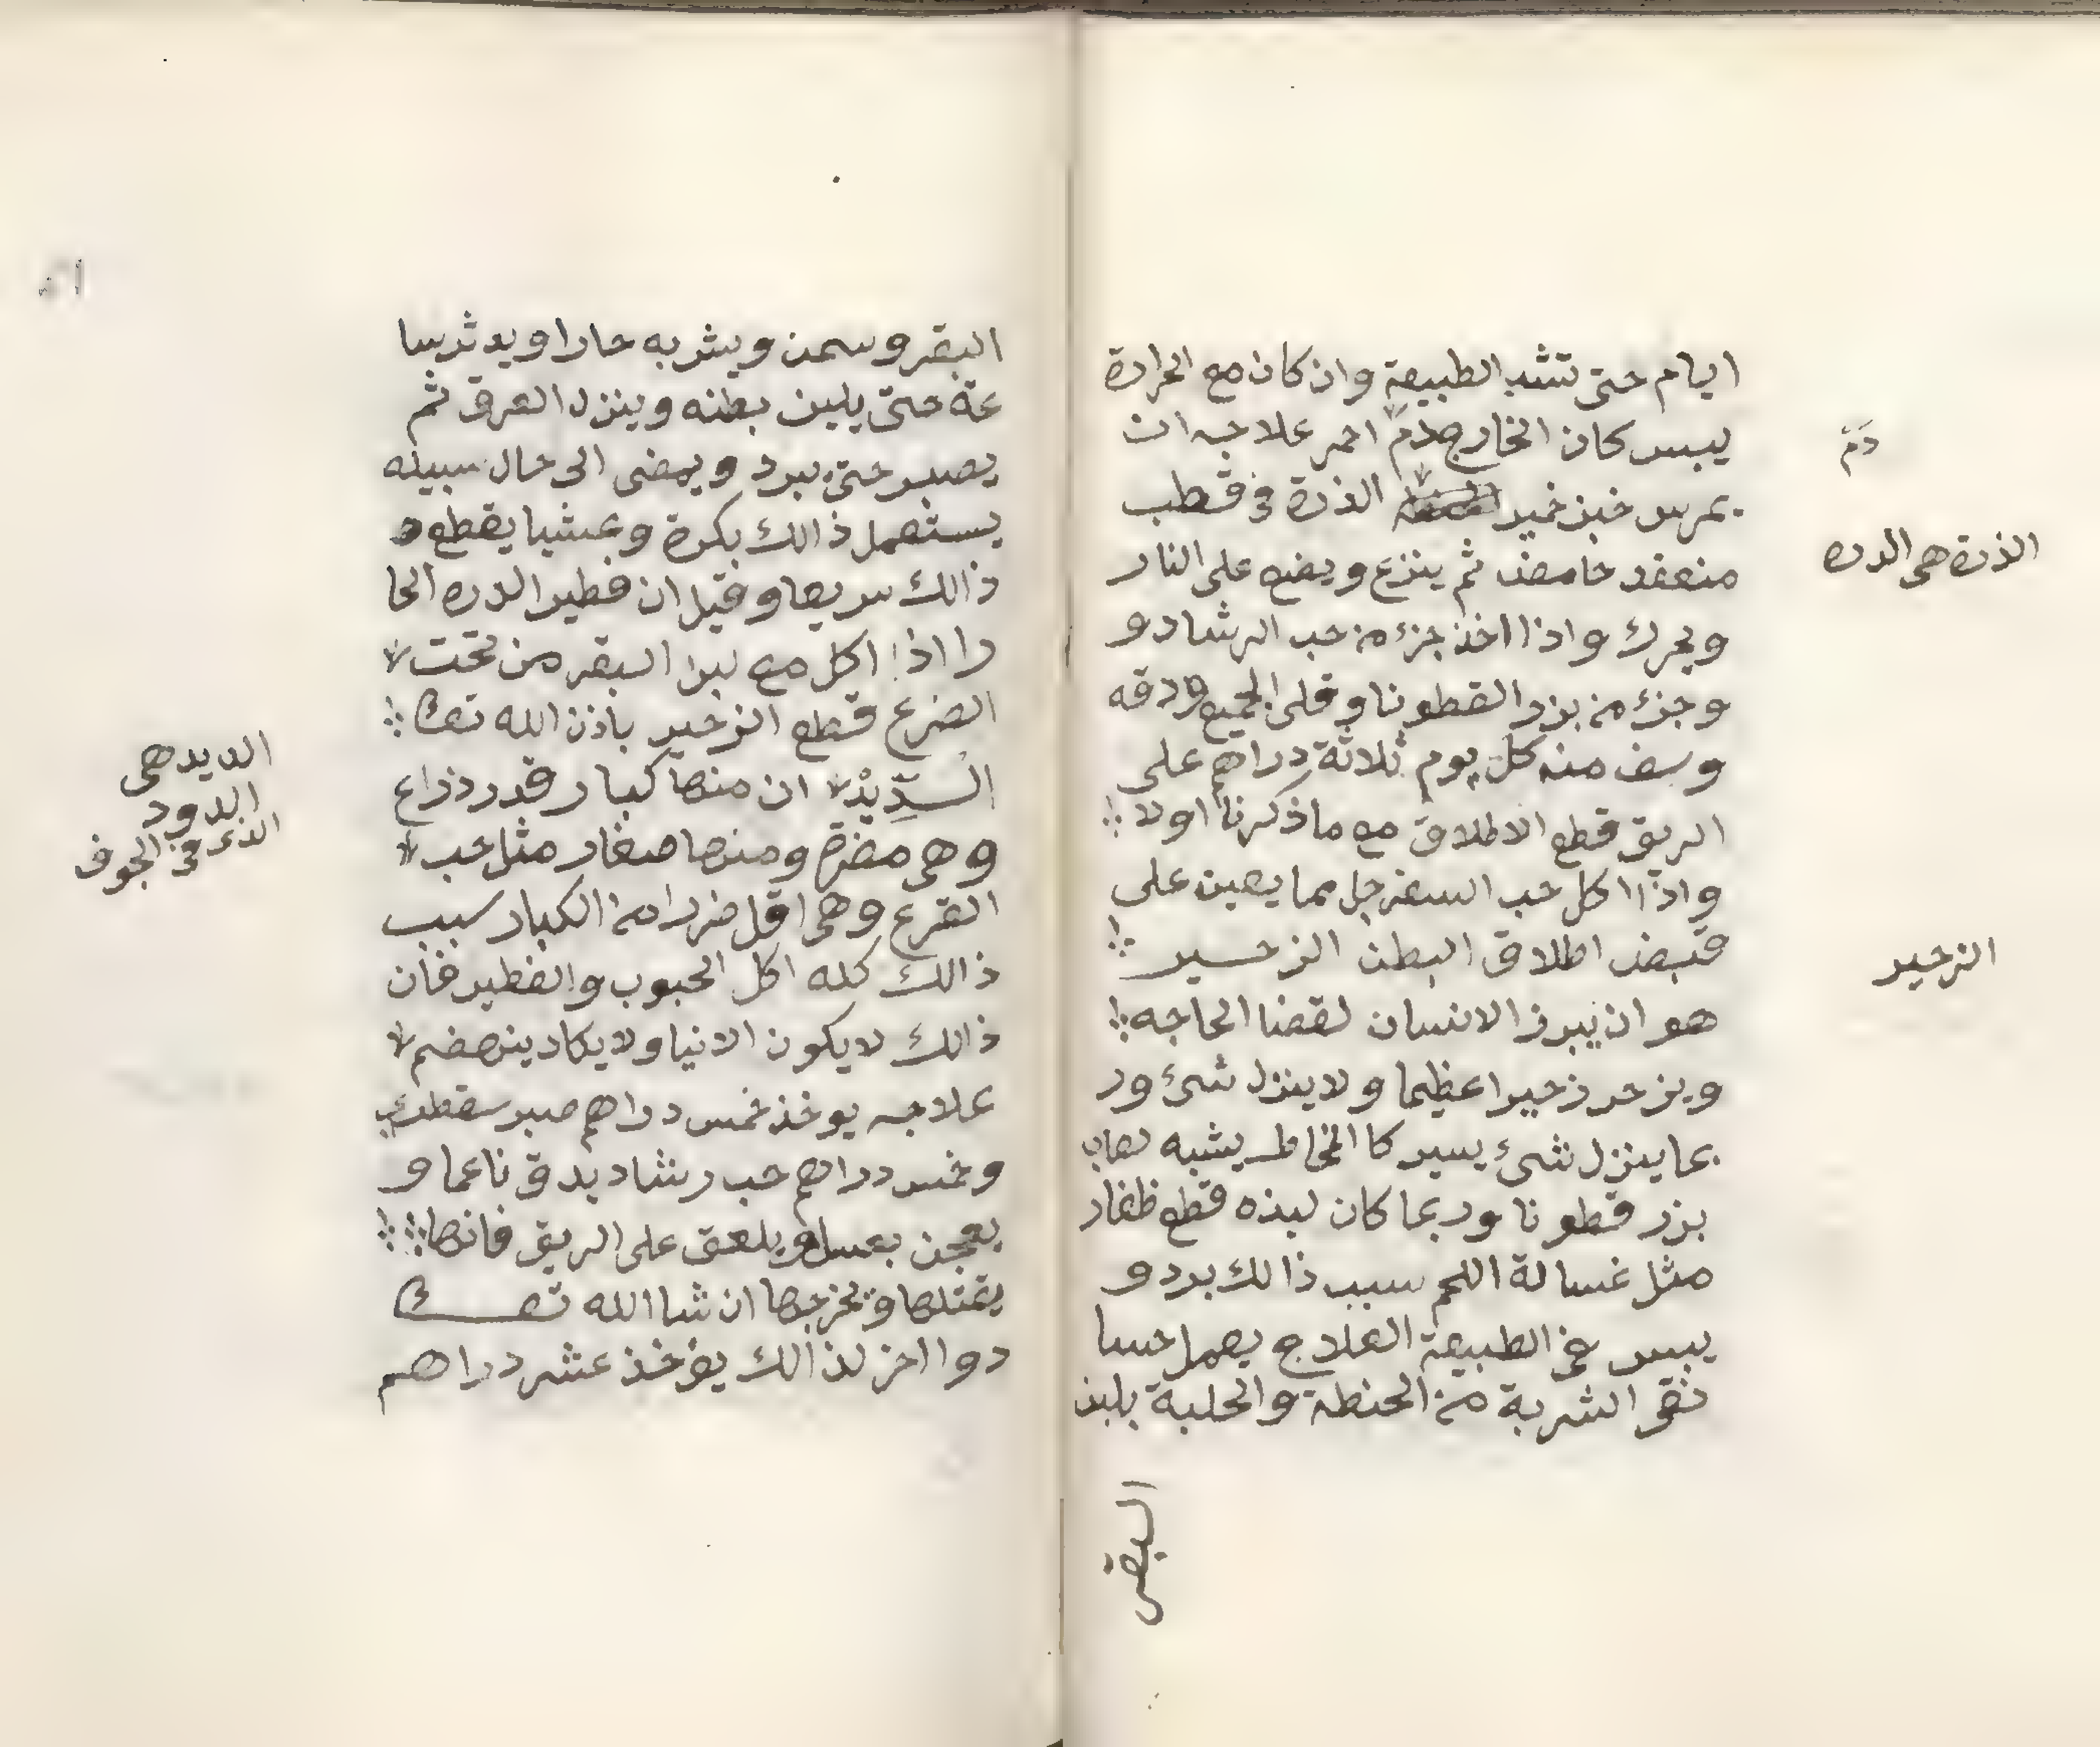 ايام حتى تشد الطبيعة وان كان مع الحرارة
يبس كان الخارج دم احمر علاجه ان
يمرس خبز خمير الذرة في قطب
منعقد حامض ثم ينزع ويضع على النار
ويحرك واذا اخذ جزء من حب الرشاد و
وجزء من بزر القطونا وقلى الجميع ودقه
وسف منه كل يوم ثلاثة دراهم على
الريق قطع الاطلاق مع ما ذكرنا اولا
واذا اكل حب السفرجل مما يعين على
قبض اطلاق البطن الزحير
هو ان يبرز الانسان لقضا الحاجه
ويزحر زحيرا عظيما ولا ينزل شيء ور
بما ينزل شيء يسير كا المخاط يشبه لعاب
بزر قطونا وربما كان لبذه قطع ظفار
مثل غسالة اللحم سبب ذالك برد و
يبس في الطبيعة العلاج يعمل حسا
نقى الشربة من الحنطة والحلبة بلبن
البقر
دم
الذرة هى الدره
الزحير
البقر وسمن ويشربه حارا ويدثر سا
عة حتى يلين بطنه وينزل العرق ثم
يصبر حتى يبرد ويمضى الى حال سبيله
يستعمل ذالك بكرة وعشيا يقطع
ذالك سريعا وقيل ان فطير الدره الحا
را اذا اكل مع لبن البقر من تحت
الضرع قطع الزحير باذن الله تعا
السديد ان منها كبار قدر ذراع
وهى مضرة ومنها صغار مثل حب
القرع وهى اقل ضررا من الكبار سبب
ذالك كله اكل الحبوب والفطير فان
ذالك لا يكون الا نيا ولا يكاد ينهضم
علاجه يوخذ خمس دراهم صبر سقطري
وخمس دراهم حب رشاد يدق ناعما و
يعجن بعسل ويلعق على الريق فانها
يقتلها ويخرجها ان شا الله تعا
دوا اخر لذالك يؤخذ عشر دراهم
الديد هى
الدود
الذى فى الجوف